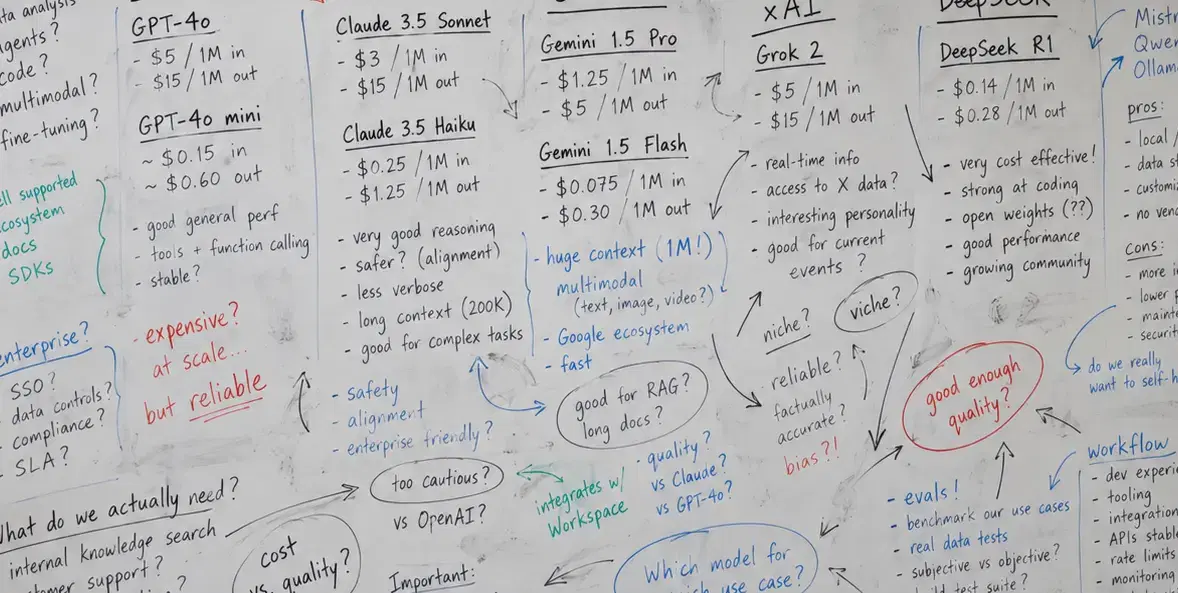 ta analysis
agents?
code?
multimodal?
fine-tuning?
ell supported
ecosystem
docs
SDKs
enterprise?
SSO?
data controls?
- compliance?
- SLA?
What do we actually need?
internal knowledge search
tomer support?
GPT-4o
- $5 / 1M in
- $15/1M out
GPT-4o mini
~ $0.15 in
~ $0.60 out
- good general perf
- tools + function calling
- stable?
- expensive?
at scale...
but reliable
cost
vs. quality?
Claude 3.5 Sonnet
- $3 / 1M in
- $15 / 1M out
Claude 3.5 Haiku
- $0.25 / 1M in
- $1.25 / 1M out
- very good reasoning
- safer? (alignment)
- less verbose
- long context (200K)
- good for complex tasks
- safety
- alignment
- enterprise friendly?
too cautious?
vs OpenAI?
Important:
Gemini 1.5 Pro
- $1.25 / 1M in
- $5 / 1M out
Gemini 1.5 Flash
- $0.075 / 1M in
- $0.30 / 1M out
- huge context (1M!)
multimodal
(text, image, video?)
- Google ecosystem
- fast
good for RAG?
long docs?
integrates w/
Workspace
- quality?
vs Claude?
vs GPT-4o?
Which model for
use case?
xAI
Grok 2
- $5 / 1M in
- $15 / 1M out
- real-time info
- access to X data?
- interesting personality
- good for current
events ?
niche?
viche?
- reliable?
factually
accurate?
bias?!
DeepSeek
DeepSeek R1
- $0.14 / 1M in
- $0.28 / 1M out
- very cost effective!
- strong at coding
- open weights (??)
- good performance
- growing community
good enough
quality?
- evals!
- benchmark our use cases
- real data tests
- subjective vs objective?
test suite?
Mistr
Qwen
Ollam
pros:
- local /
- data s
- customiz
- no ven
cons:
- more i
- lower p
- mainte
- securit
do we really
want to self-h
workflow
- dev experi
- tooling
- integration
- APIs stabl
- rate limits
- monitoring